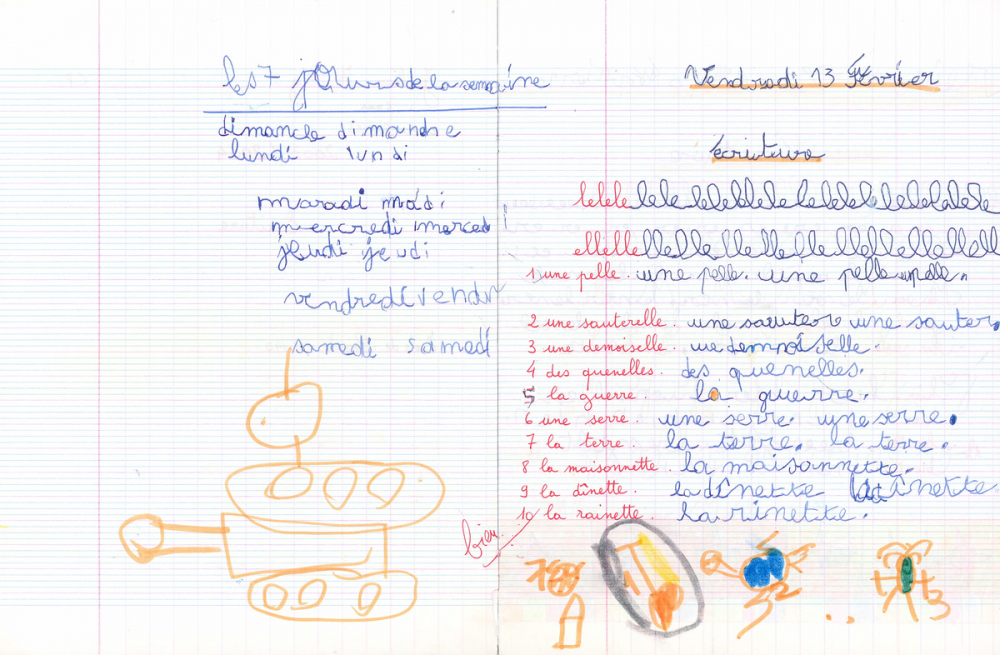 les 7 jours de la semaine
dimance dimandre
lundi lundi
maradi madi
mercredi merced
jeudi jeudi
vendredi vendr
samedi samedi
Vendradi 13 Février
écriture
lelelelelelelelelelelelelelelele
ellellellellellellellellellell
1 une pelle. une pelle. une pelle une pelle.
2 une sauterelle. une sauter une sauter
3 une demoiselle. une demoiselle.
4 des quenelles. des quenelles.
5 la guerre. la guerre.
6 une serre. une serre. une serre.
7 la terre. la terre. la terre.
8 la maisonnette. la maisonnette.
9 la dînette. la dînette la dînette
10 la rainette. la rinette.
bien
1
2
3